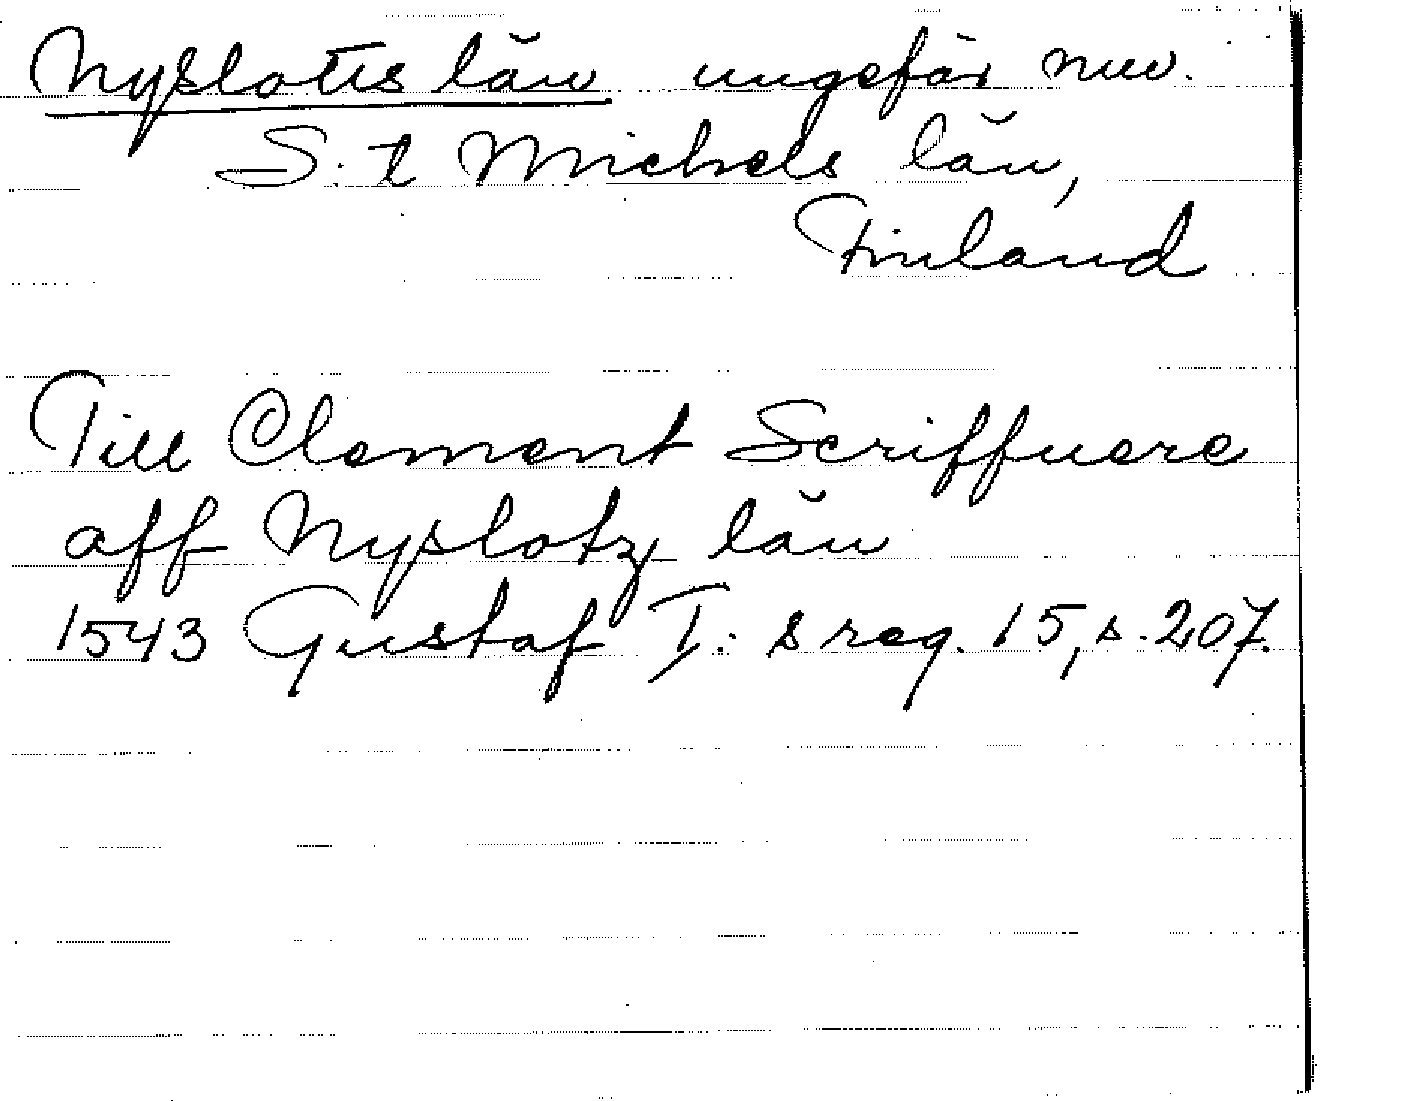 Nyslotts län ungefär nuv.
S:t Michels län,
Finland
Till Clement Scriffuere
aff Nyslotz län
1543 Gustaf I:s reg. 15, s. 207.